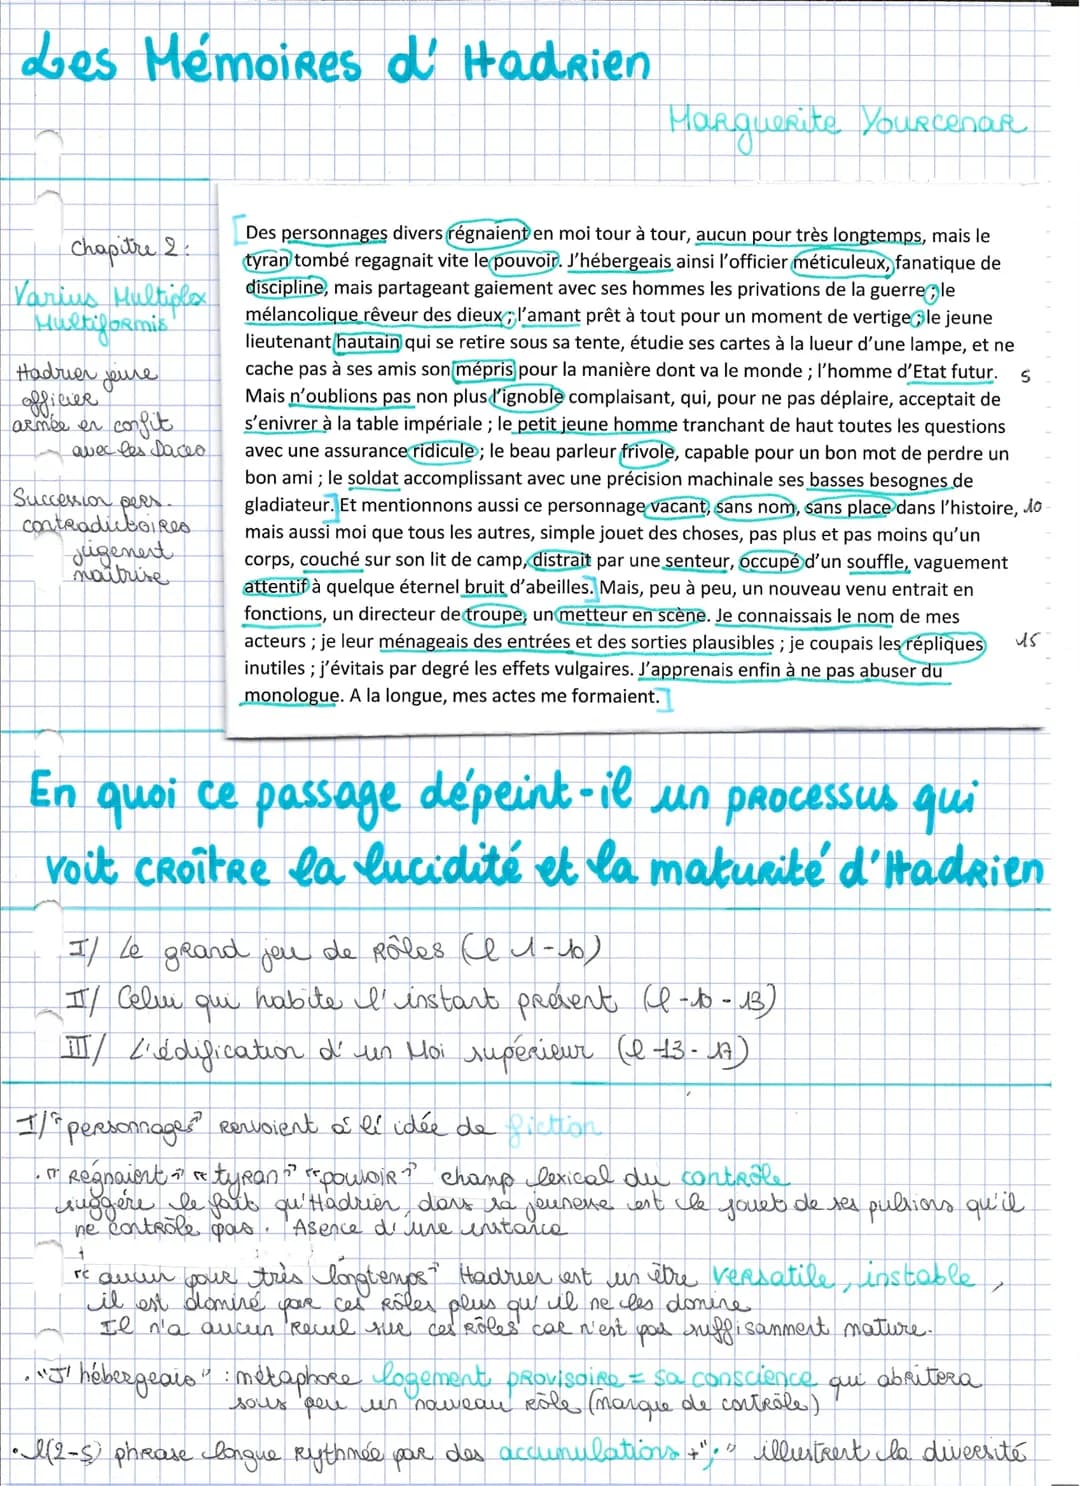 Les Mémoires d'Hadrien
Marguerite Yourcenar
Chapitre 2 :
Varius Multiplex
Multiformis
Hadrien jeune
officier
armée en conflit
avec les Daces
Succession pers.
contradictoires
jugement
maîtrise
[Des personnages divers régnaient en moi tour à tour, aucun pour très longtemps, mais le
tyran tombé regagnait vite le pouvoir. J'hébergeais ainsi l'officier méticuleux, fanatique de
discipline, mais partageant gaiement avec ses hommes les privations de la guerre ; le
mélancolique rêveur des dieux ; l'amant prêt à tout pour un moment de vertige ; le jeune
lieutenant hautain qui se retire sous sa tente, étudie ses cartes à la lueur d'une lampe, et ne
cache pas à ses amis son mépris pour la manière dont va le monde ; l'homme d'Etat futur. 5
Mais n'oublions pas non plus l'ignoble complaisant, qui, pour ne pas déplaire, acceptait de
s'enivrer à la table impériale ; le petit jeune homme tranchant de haut toutes les questions
avec une assurance ridicule ; le beau parleur frivole, capable pour un bon mot de perdre un
bon ami ; le soldat accomplissant avec une précision machinale ses basses besognes de
gladiateur.] Et mentionnons aussi ce personnage vacant, sans nom, sans place dans l'histoire, 10
mais aussi moi que tous les autres, simple jouet des choses, pas plus et pas moins qu'un
corps, couché sur son lit de camp, distrait par une senteur, occupé d'un souffle, vaguement
attentif à quelque éternel bruit d'abeilles.] Mais, peu à peu, un nouveau venu entrait en
fonctions, un directeur de troupe, un metteur en scène. Je connaissais le nom de mes
acteurs ; je leur ménageais des entrées et des sorties plausibles ; je coupais les répliques 15
inutiles ; j'évitais par degré les effets vulgaires. J'apprenais enfin à ne pas abuser du
monologue. A la longue, mes actes me formaient.]
En quoi ce passage dépeint-il un processus qui
voit croître la lucidité et la maturité d'Hadrien
I/ Le grand jeu de rôles (l 1-10)
II/ Celui qui habite l'instant présent (l-10-13)
III/ L'édification d'un Moi supérieur (l-13-17)
I/ "personnages" renvoient à l'idée de fiction
. "Régnaient" "tyran" "pouvoir" champ lexical du contrôle
suggère le fait qu'Hadrien, dans sa jeunesse est le jouet de ses pulsions qu'il
ne contrôle pas. Asence d'une instance
+
"aucun pour très longtemps" Hadrien est un être versatile, instable,
il est dominé par ces rôles plus qu'il ne les domine
Il n'a aucun recul sur ces rôles car n'est pas suffisamment mature.
. "J'hébergeais" : métaphore logement provisoire = sa conscience qui abritera
sous peu un nouveau rôle (marque de contrôle)
. l(2-5) phrase longue rythmée par des accumulations + ";" illustrent la diversité